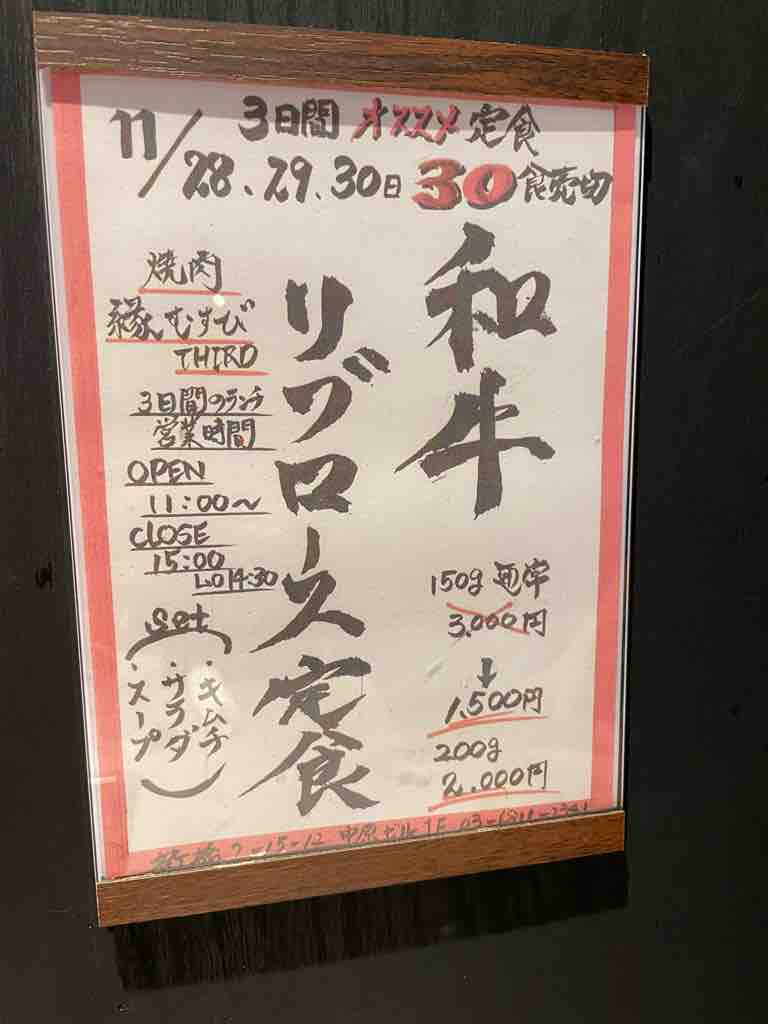 3日間 オススメ定食
11/28、29、30日 30食売切
和牛
リブロース定食
150g 通常
3,000円
↓
1,500円
200g
2,000円
焼肉
縁むすび
THIRD
3日間のランチ
営業時間
OPEN
11:00〜
CLOSE
15:00
LO14:30
Set
・キムチ
・サラダ
・スープ
新橋 2-15-12 中原ビル1F 03-